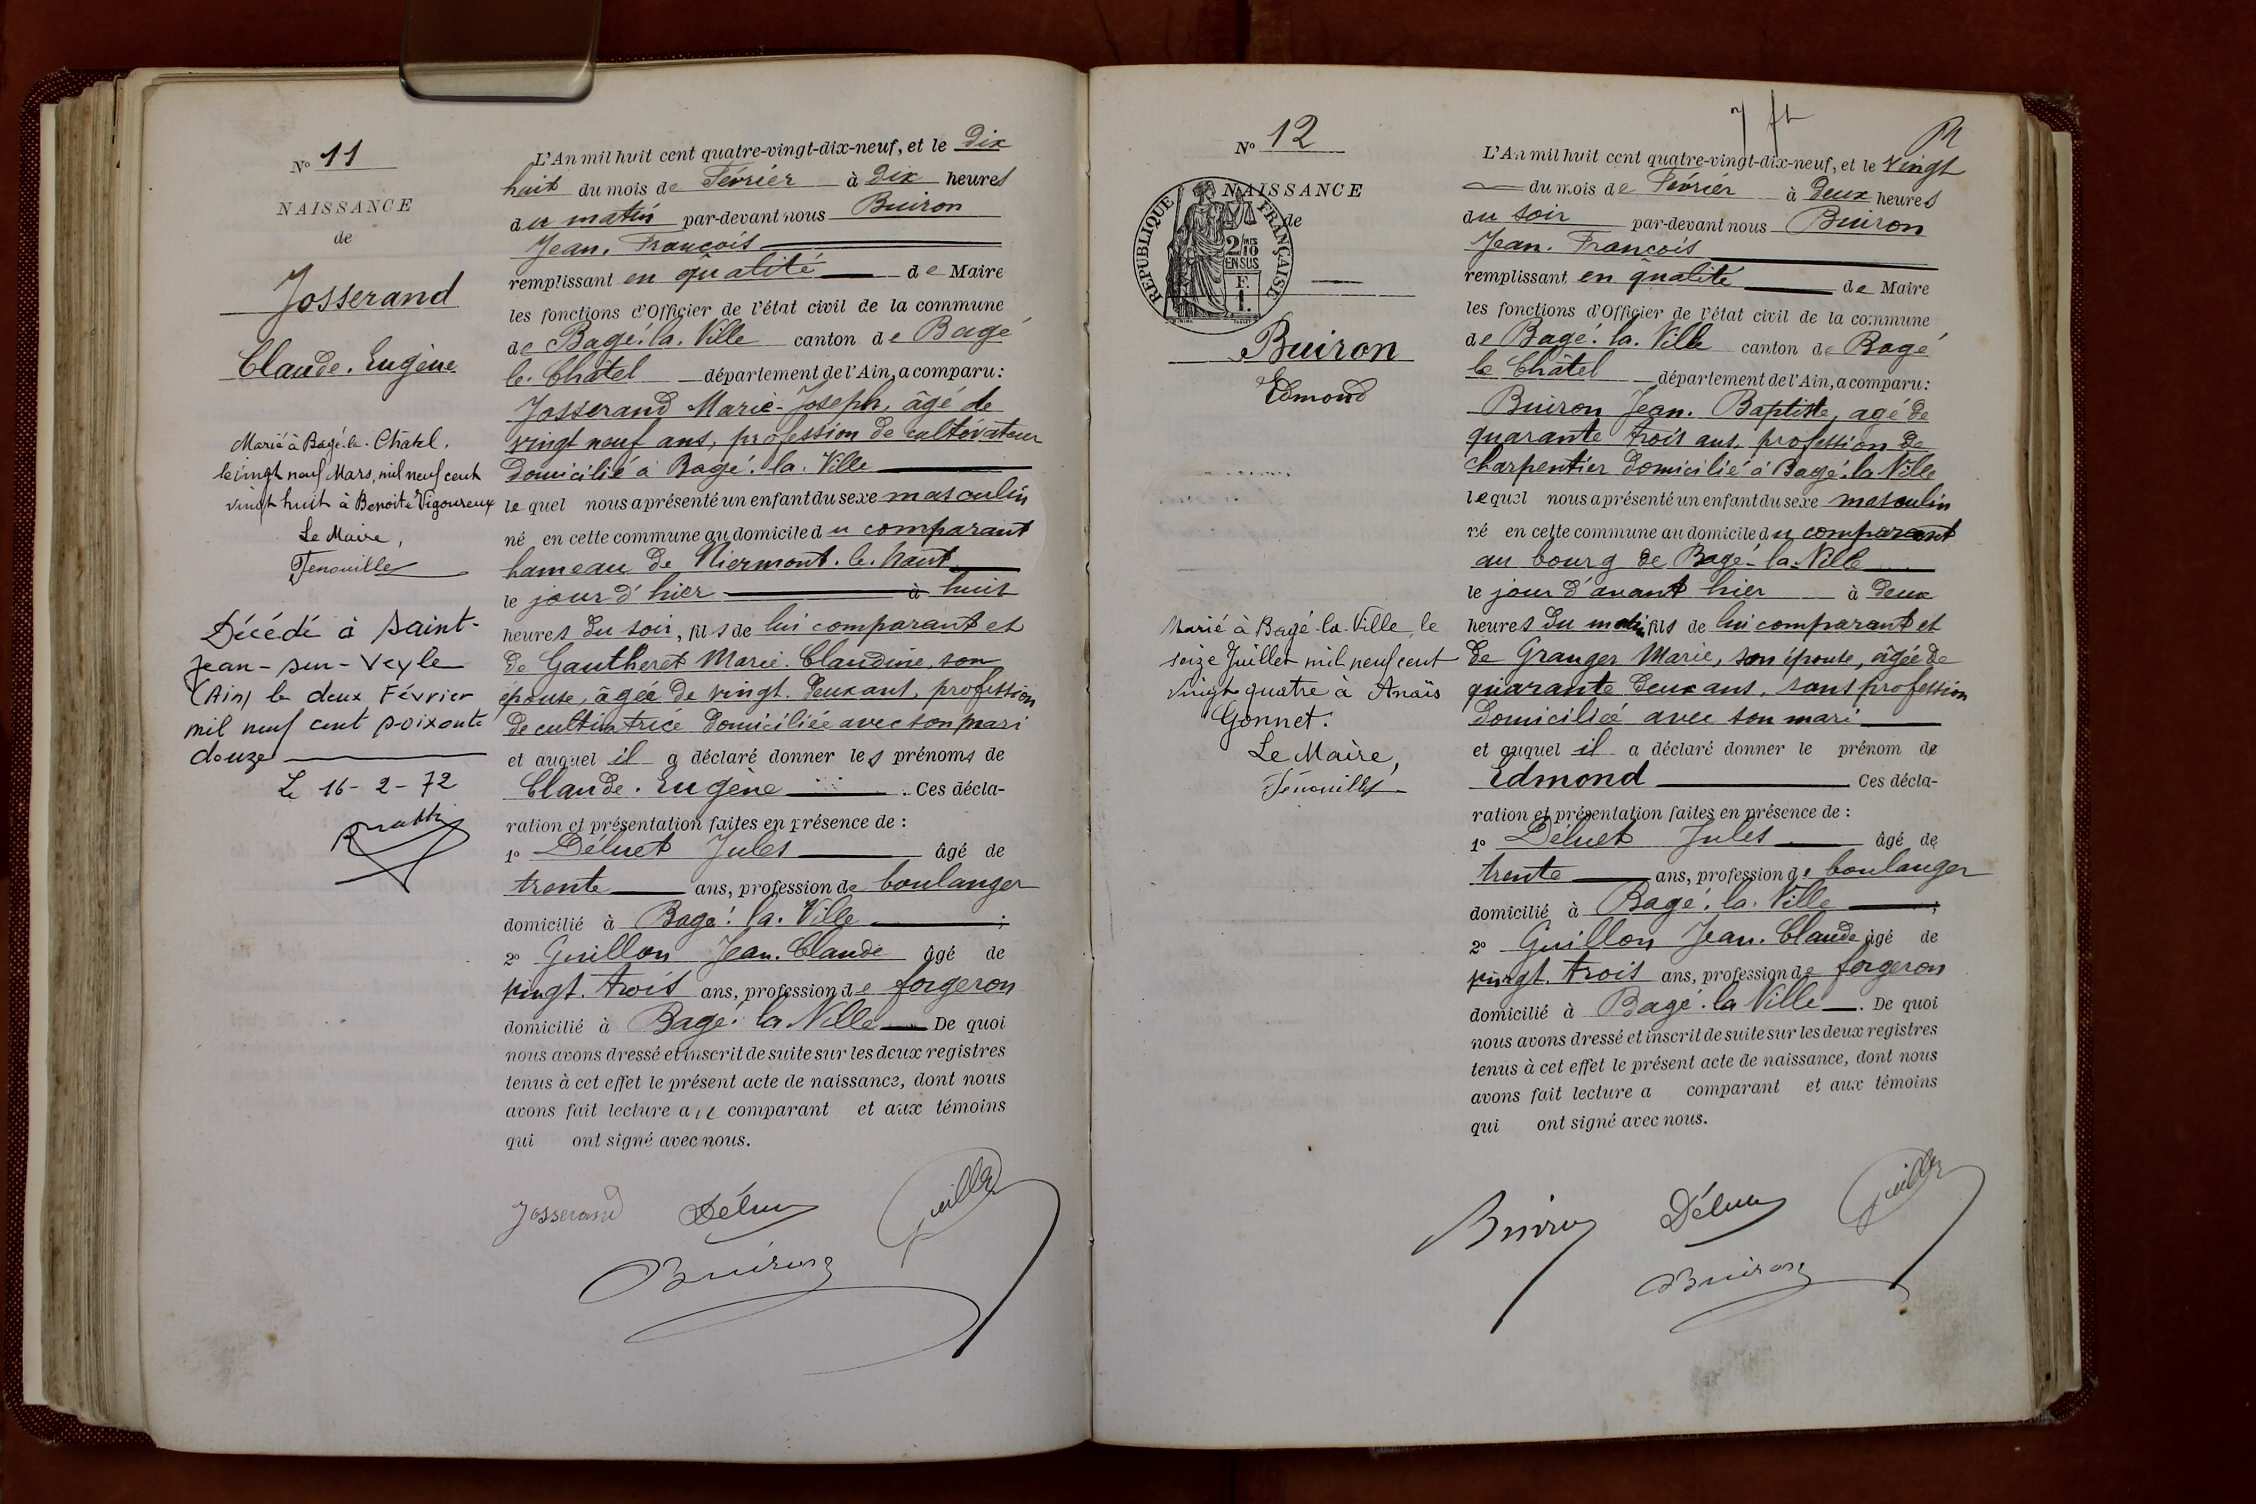 N° 11
NAISSANCE
de
Josserand
Claude. Eugène
Marié à Bagé-le-Châtel,
le vingt neuf Mars, mil neuf cent
vingt huit à Benoite Vigoureux
Le Maire,
Fenouillet
Décédé à Saint-
Jean-sur-Veyle
(Ain) le deux Février
mil neuf cent soixante
douze
Le 16-2-72
L'An mil huit cent quatre-vingt-dix-neuf, et le Dix
huit du mois de Février à Dix heures
du matin par-devant nous Buiron
Jean. François
remplissant en qualité de Maire
les fonctions d'Officier de l'état civil de la commune
de Bagé. la. Ville canton de Bagé
le. Châtel département de l'Ain, a comparu :
Josserand Marie-Joseph, âgé de
vingt neuf ans, profession de cultivateur
domicilié à Bagé. la. Ville
lequel nous a présenté un enfant du sexe masculin
né en cette commune au domicile du comparant
hameau de Niermont. le. haut
le jour d'hier à huit
heures du soir, fils de lui comparant et
de Gautheret Marie. Claudine, son
épouse, âgée de vingt. deux ans, profession
de cultivatrice domiciliée avec son mari
et auquel il a déclaré donner les prénoms de
Claude. Eugène . Ces décla-
ration et présentation faites en présence de :
1° Déluet Jules âgé de
trente ans, profession de boulanger
domicilié à Bagé. la. Ville ;
2° Guillon Jean. Claude âgé de
vingt. trois ans, profession de forgeron
domicilié à Bagé. la Ville De quoi
nous avons dressé et inscrit de suite sur les deux registres
tenus à cet effet le présent acte de naissance, dont nous
avons fait lecture au comparant et aux témoins
qui ont signé avec nous.
Josserand Déluet Guillon
Buiron
N° 12
NAISSANCE
de
RÉPUBLIQUE FRANÇAISE
2/10
EN SUS
Buiron
Edmond
Marié à Bagé-la-Ville, le
seize Juillet mil neuf cent
vingt quatre à Anaïs
Gonnet.
Le Maire,
Fenouillet
L'An mil huit cent quatre-vingt-dix-neuf, et le vingt
du mois de Février à deux heures
du soir par-devant nous Buiron
Jean. François
remplissant en qualité de Maire
les fonctions d'Officier de l'état civil de la commune
de Bagé. la. Ville canton de Bagé
le Châtel département de l'Ain, a comparu :
Buiron Jean. Baptiste, agé de
quarante trois ans, profession de
charpentier domicilié à Bagé. la Ville
lequel nous a présenté un enfant du sexe masculin
né en cette commune au domicile du comparant
au bourg de Bagé-la-Ville
le jour d'avant hier à deux
heures du matin, fils de lui comparant et
de Granger Marie, son épouse, âgée de
quarante deux ans, sans profession
domiciliée avec son mari
et auquel il a déclaré donner le prénom de
Edmond Ces décla-
ration et présentation faites en présence de :
1° Déluet Jules âgé de
trente ans, profession de boulanger
domicilié à Bagé. la. Ville ;
2° Guillon Jean. Claude âgé de
vingt. trois ans, profession de forgeron
domicilié à Bagé. la Ville . De quoi
nous avons dressé et inscrit de suite sur les deux registres
tenus à cet effet le présent acte de naissance, dont nous
avons fait lecture a comparant et aux témoins
qui ont signé avec nous.
Buiron Déluet Guillon
Buiron